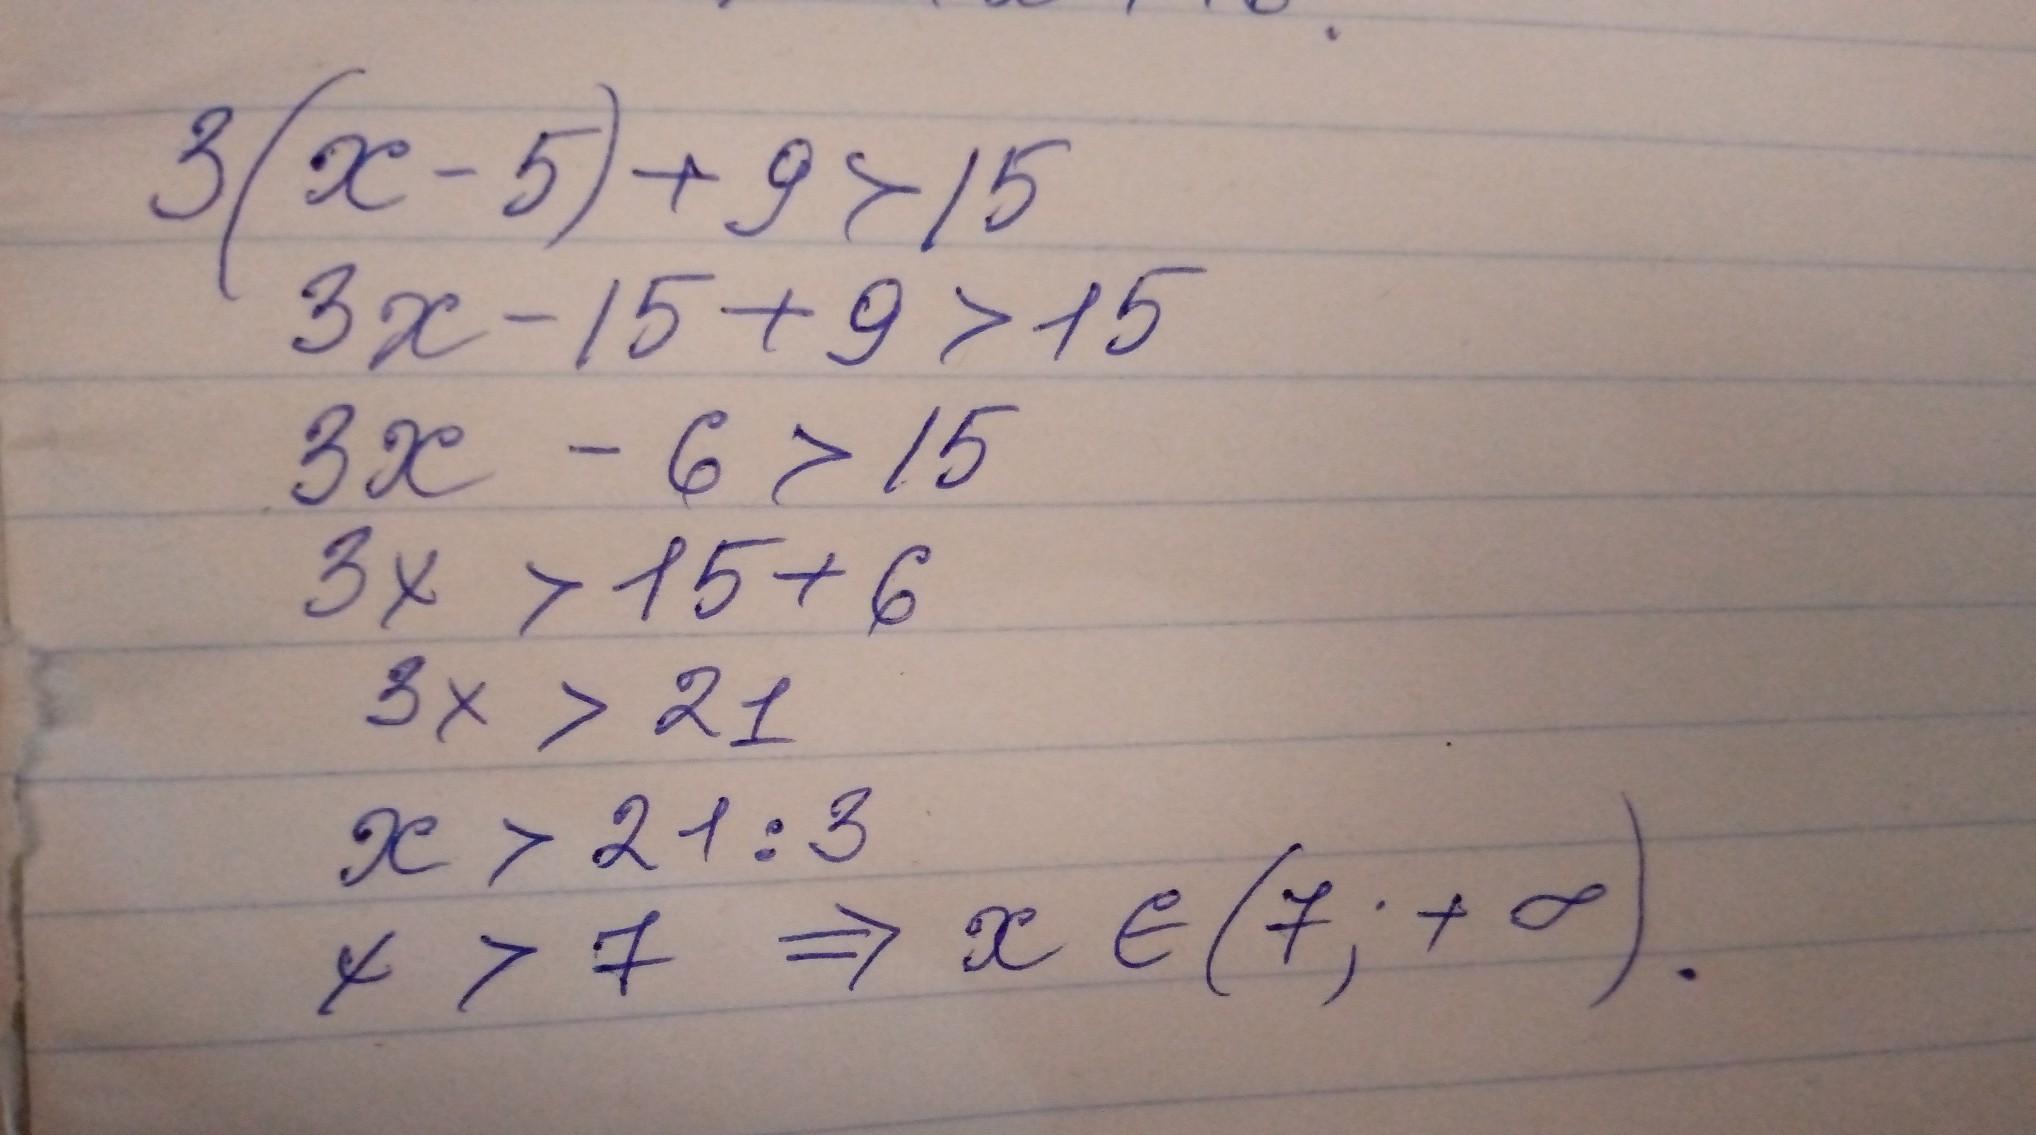 3(x-5)+9>15
3x-15+9>15
3x - 6 > 15
3x > 15+6
3x > 21
x > 21:3
x > 7 ⇒ x ∈ (7; +∞).